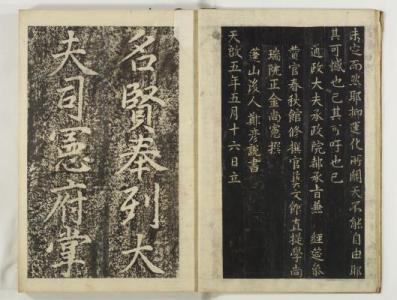 未定而然耶抑運化所關天不能自由耶
其可憾也已其可吁也已
通政大夫承政院都承旨兼 經筵參
贊官春秋館修撰官藝文館直提學尚
瑞院正金尚憲撰
蓬山後人鄭彦謐書
天啟五年五月十六日立
名賢奉列大
夫司憲府掌